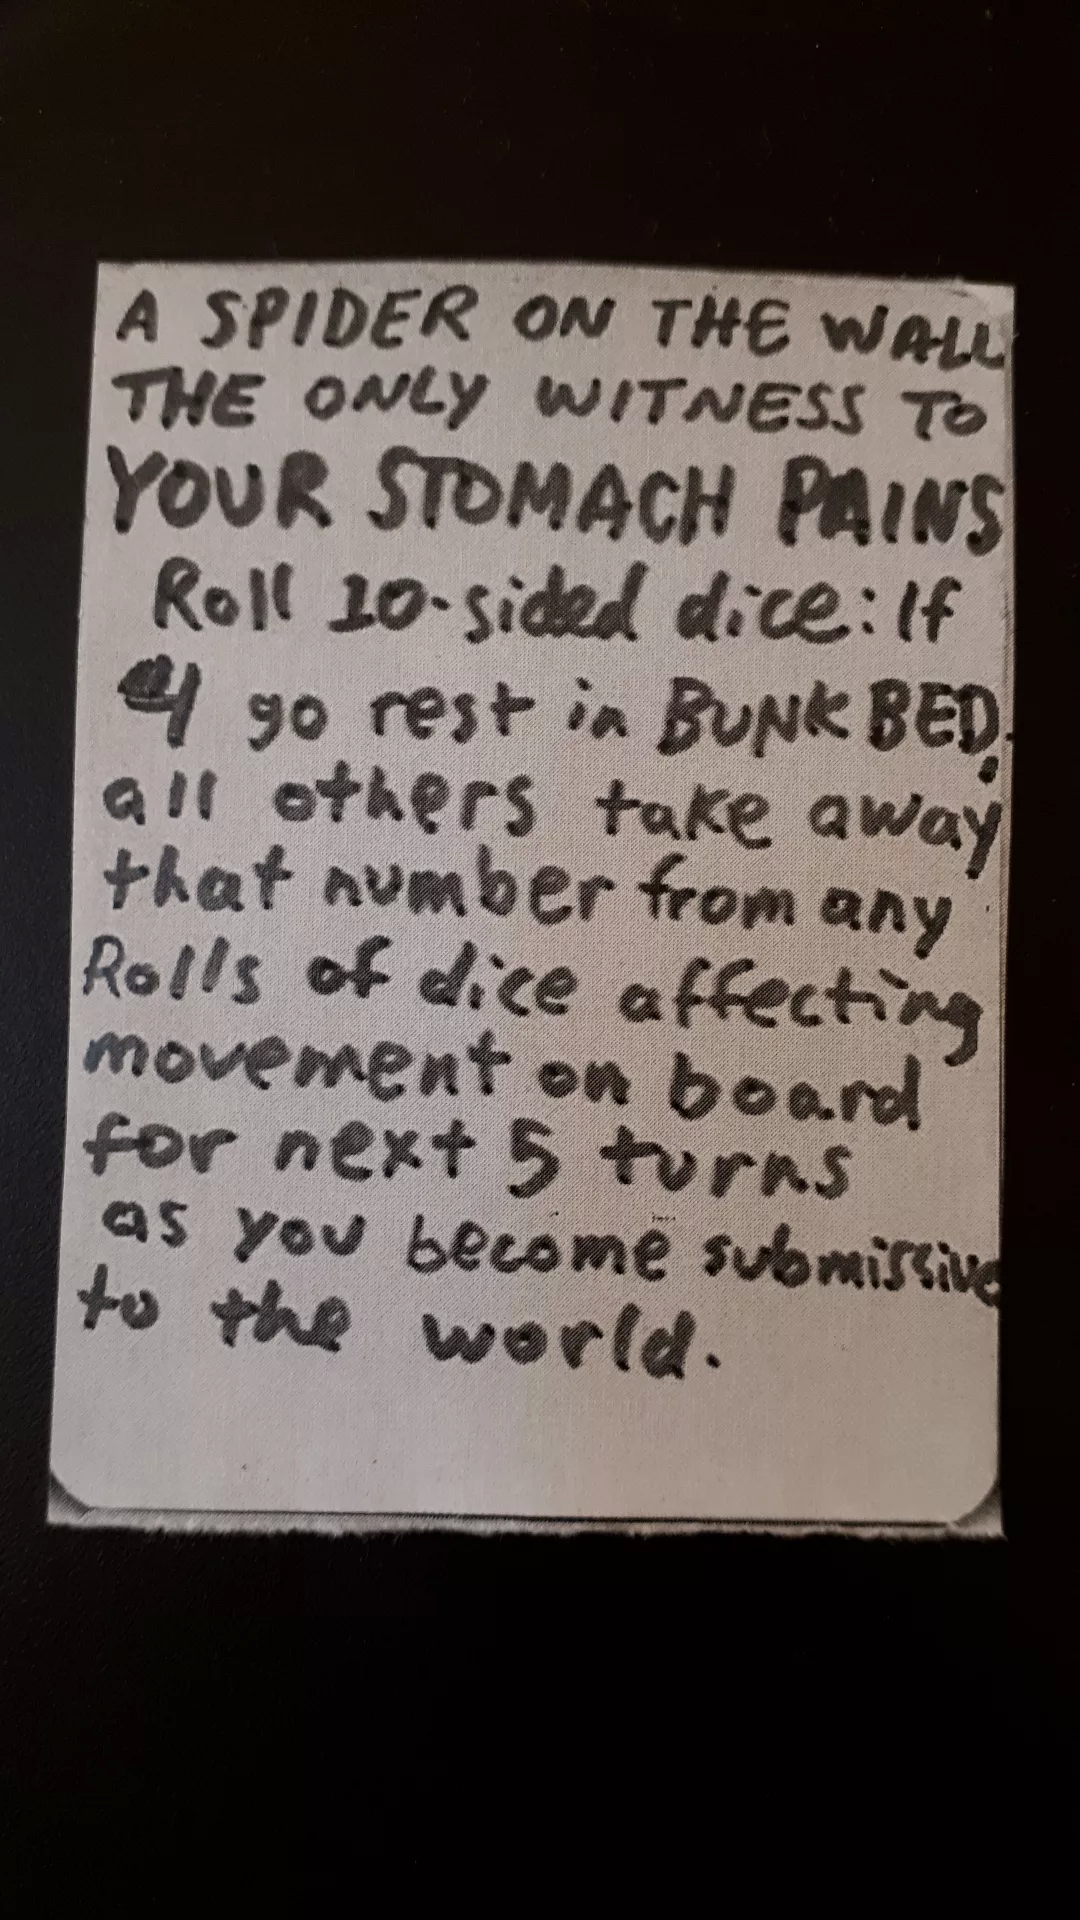 A SPIDER ON THE WALL
THE ONLY WITNESS TO
YOUR STOMACH PAINS
Roll 10-sided dice: If
go rest in BUNK BED.
all others take away
that number from any
Rolls of dice affecting
movement on board
for next 5 turns
as you become submissive
to the world.